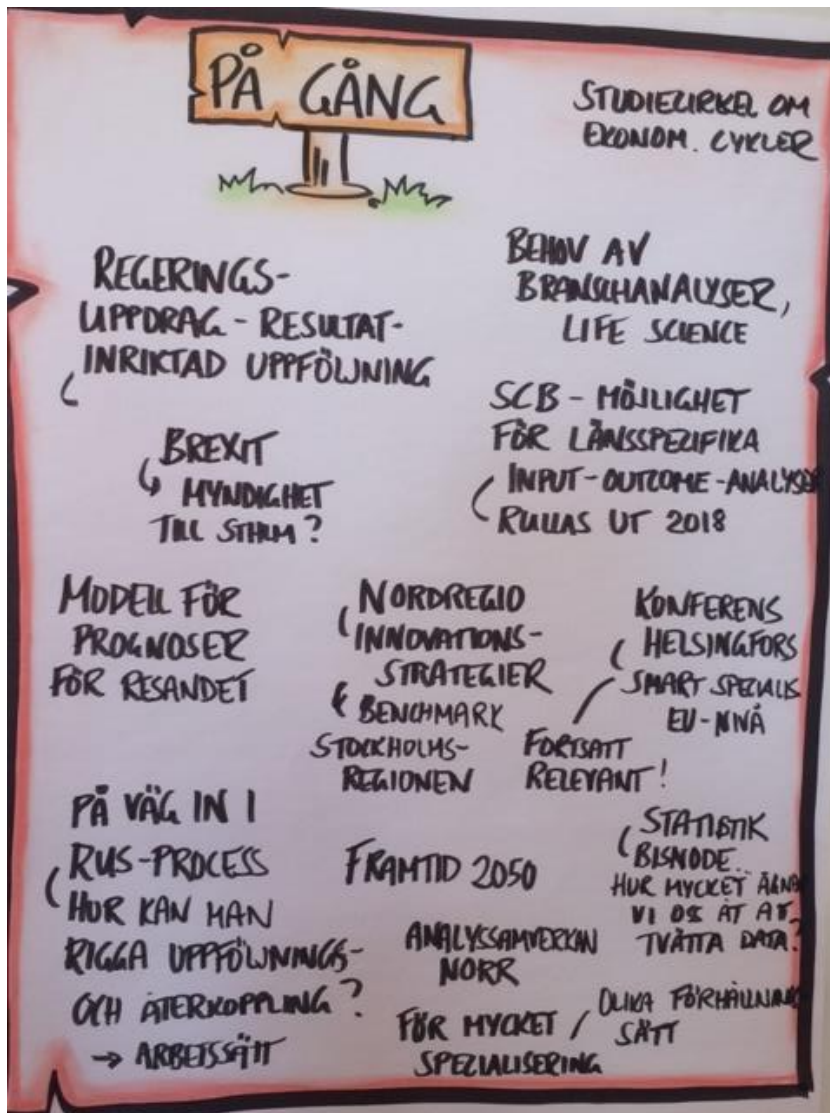 PÅ GÅNG
STUDIECIRKEL OM
EKONOM. CYKLER
REGERINGS-
UPPDRAG - RESULTAT-
INRIKTAD UPPFÖLJNING
BEHOV AV
BRANSCHANALYSER,
LIFE SCIENCE
BREXIT
MYNDIGHET
TILL STHLM?
SCB - MÖJLIGHET
FÖR LÄNSSPECIFIKA
INPUT-OUTCOME-ANALYSER
RULLAS UT 2018
MODELL FÖR
PROGNOSER
FÖR RESANDET
NORDREGIO
INNOVATIONS-
STRATEGIER
BENCHMARK
STOCKHOLMS-
REGIONEN
KONFERENS
HELSINGFORS
SMART SPECIALIS
EU-NIVÅ
FORTSATT
RELEVANT!
PÅ VÄG IN I
RUS-PROCESS
HUR KAN MAN
RIGGA UPPFÖLJNINGS-
OCH ÅTERKOPPLING?
→ ARBETSSÄTT
FRAMTID 2050
STATISTIK
BISNODE
HUR MYCKET ÄGNAR
VI OSS ÅT AT
TVÄTTA DATA?
ANALYSSAMVERKAN
NORR
FÖR MYCKET /
SPECIALISERING
OLIKA FÖRHÅLLNING
SÄTT